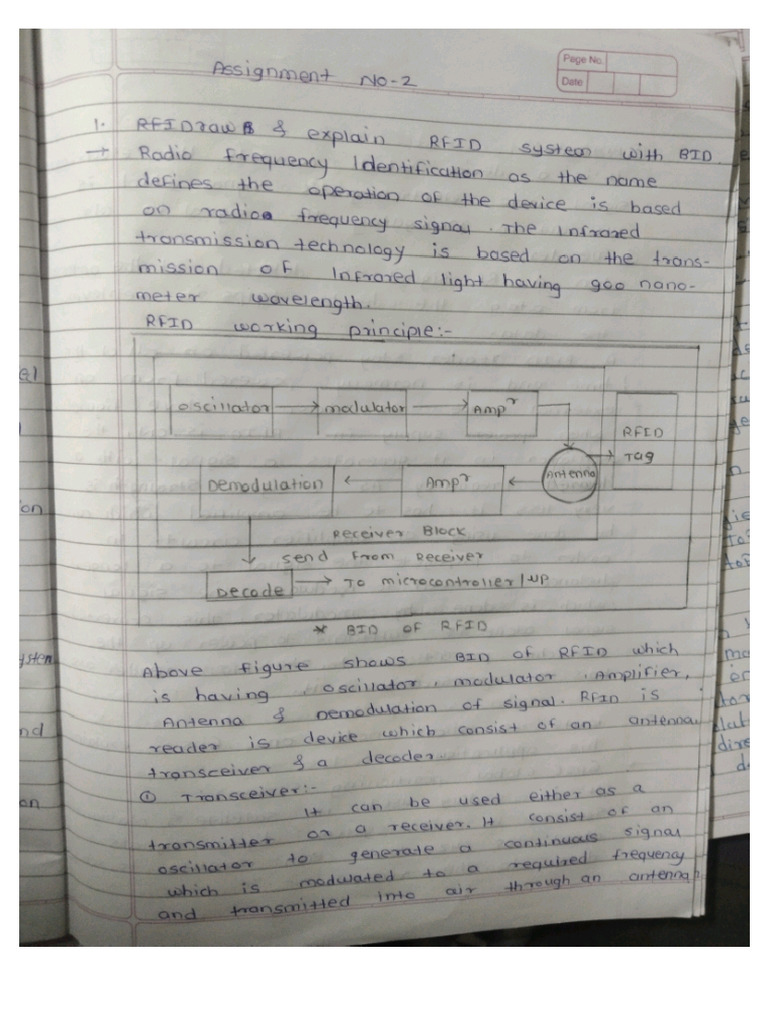 Page No.
Date
Assignment No-2
1. RFIDraw B & explain RFID system with BID.
→ Radio frequency Identification as the name
defines the operation of the device is based
on radio frequency signal. The Infrared
transmission technology is based on the trans-
mission of Infrared light having 900 nano-
meter wavelength.
RFID working principle:-
oscillator → modulator → Ampʳ
RFID
Tag
Demodulation ← Ampʳ ← Antenna
Receiver Block
send from receiver
Decode → To microcontroller/μp
* BID OF RFID
Above figure shows BID of RFID which
is having oscillator, modulator, Amplifier,
Antenna & Demodulation of signal. RFID is
reader is device which consist of an antenna
transceiver & a decoder.
① Transceiver:-
It can be used either as a
transmitter or a receiver. It consist of an
oscillator to generate a continuous signal
which is modulated to a required frequency
and transmitted into air through an antenna